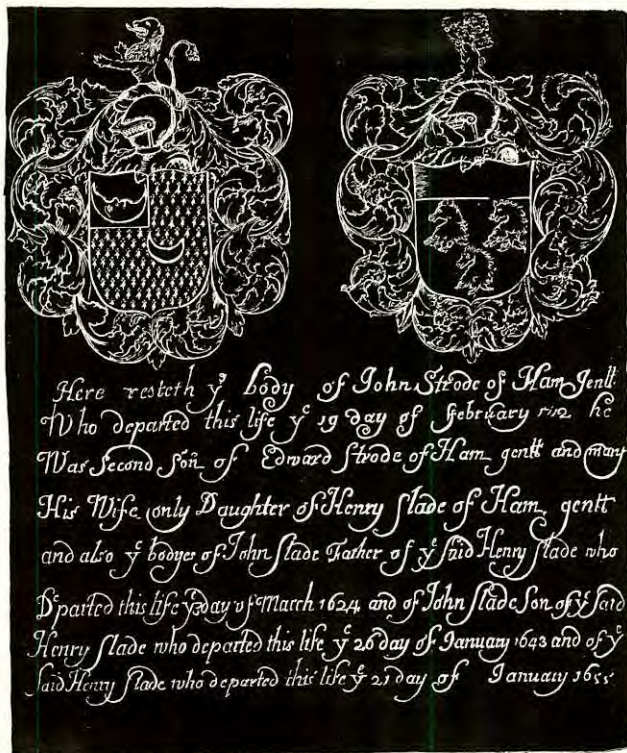 Here resteth yᵉ body of John Strode of Ham Gentt:
Who departed this life yᵉ 19 day of february he
Was Second Son of Edward Strode of Ham gentt and mary
His Wife only Daughter of Henry Slade of Ham gentt
and also yᵉ bodyes of John Slade Father of yᵉ said Henry Slade who
Dᵉparted this life yᵉ day of March 1624 and of John Slade Son of yᵉ said
Henry Slade who departed this life yᵉ 26 day of January 1643 and of yᵉ
said Henry Slade who departed this life yᵉ 21 day of January 1655